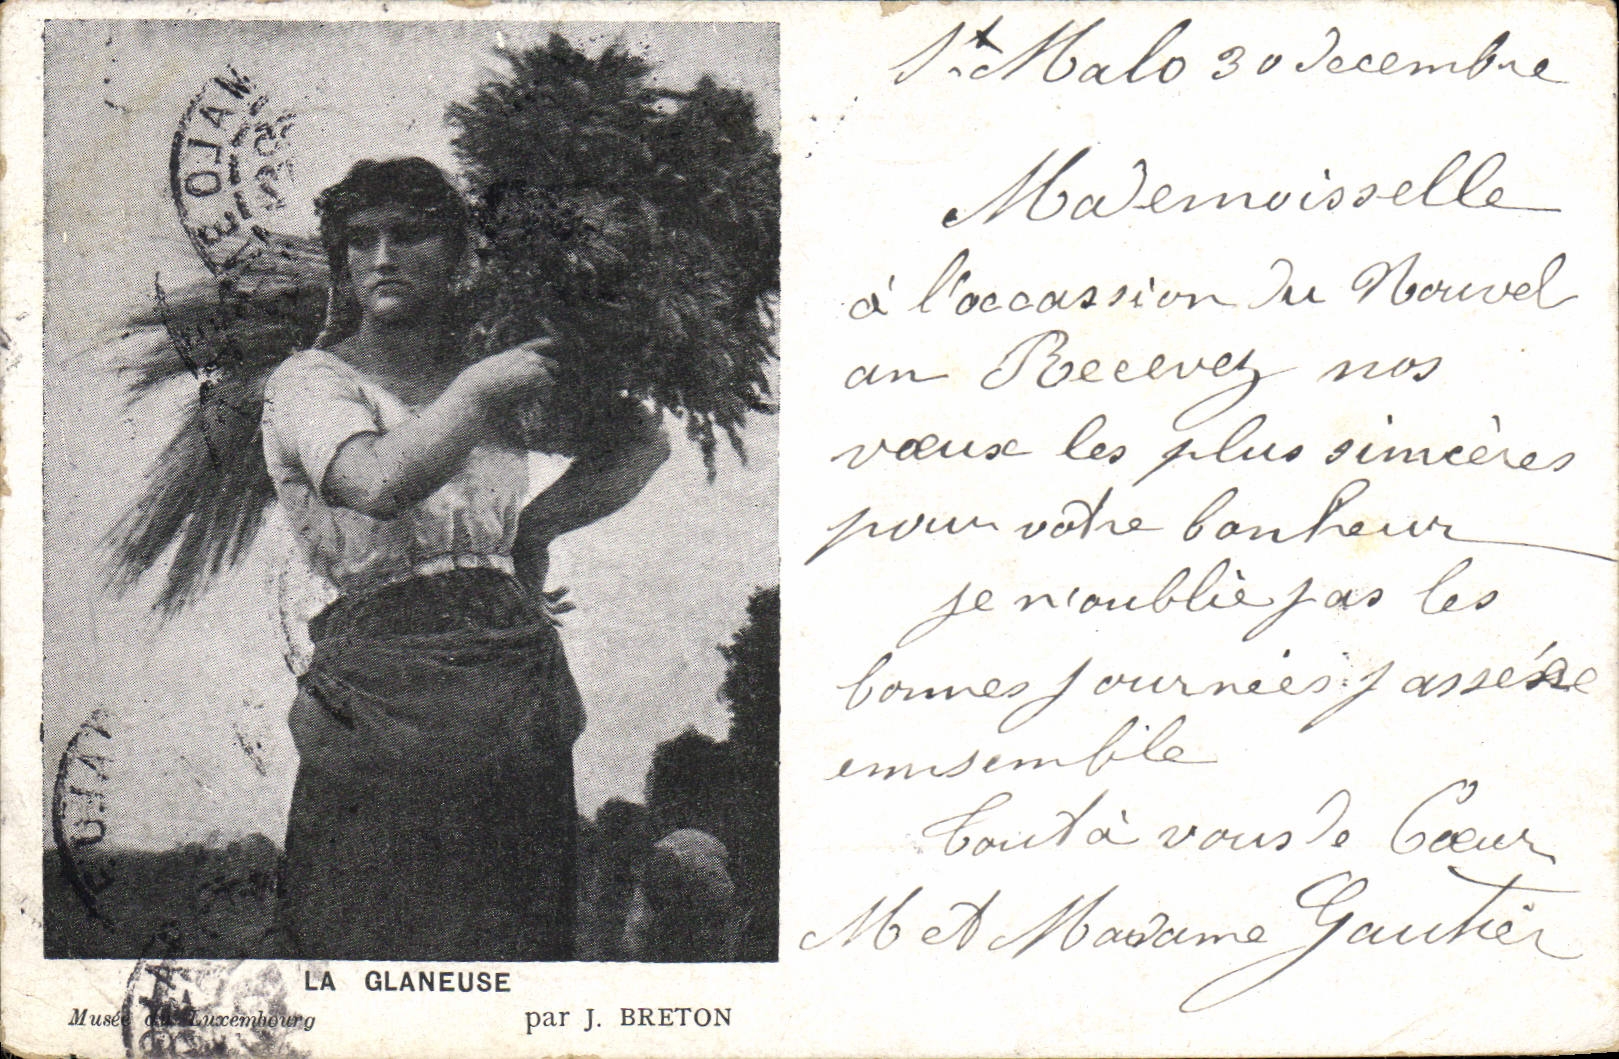 St Malo 30 decembre
Mademoisselle
à l'occassion du Nouvel
an Recevez nos
vœux les plus simcères
pour votre bonheur
je n'oublie pas les
bonnes journèes passé
ennsemble
tout à vous de Cœur
M et Madame Gautier
LA GLANEUSE
Musée du Luxembourg par J. BRETON